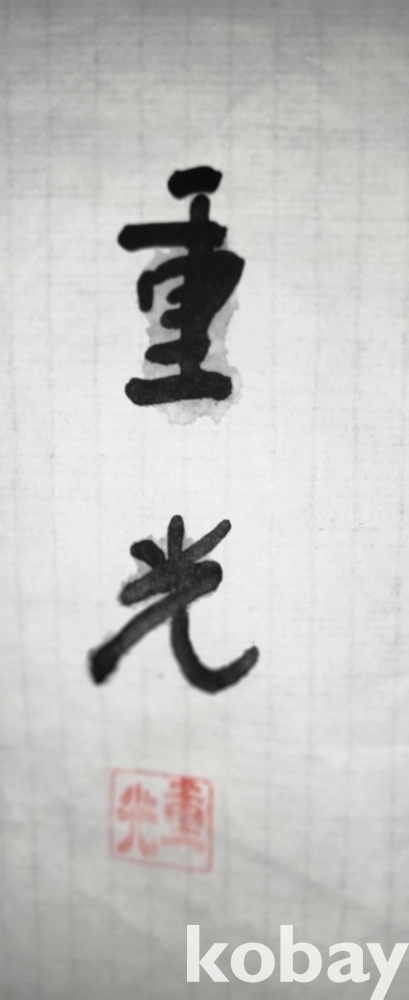 重
光
重光
kobay